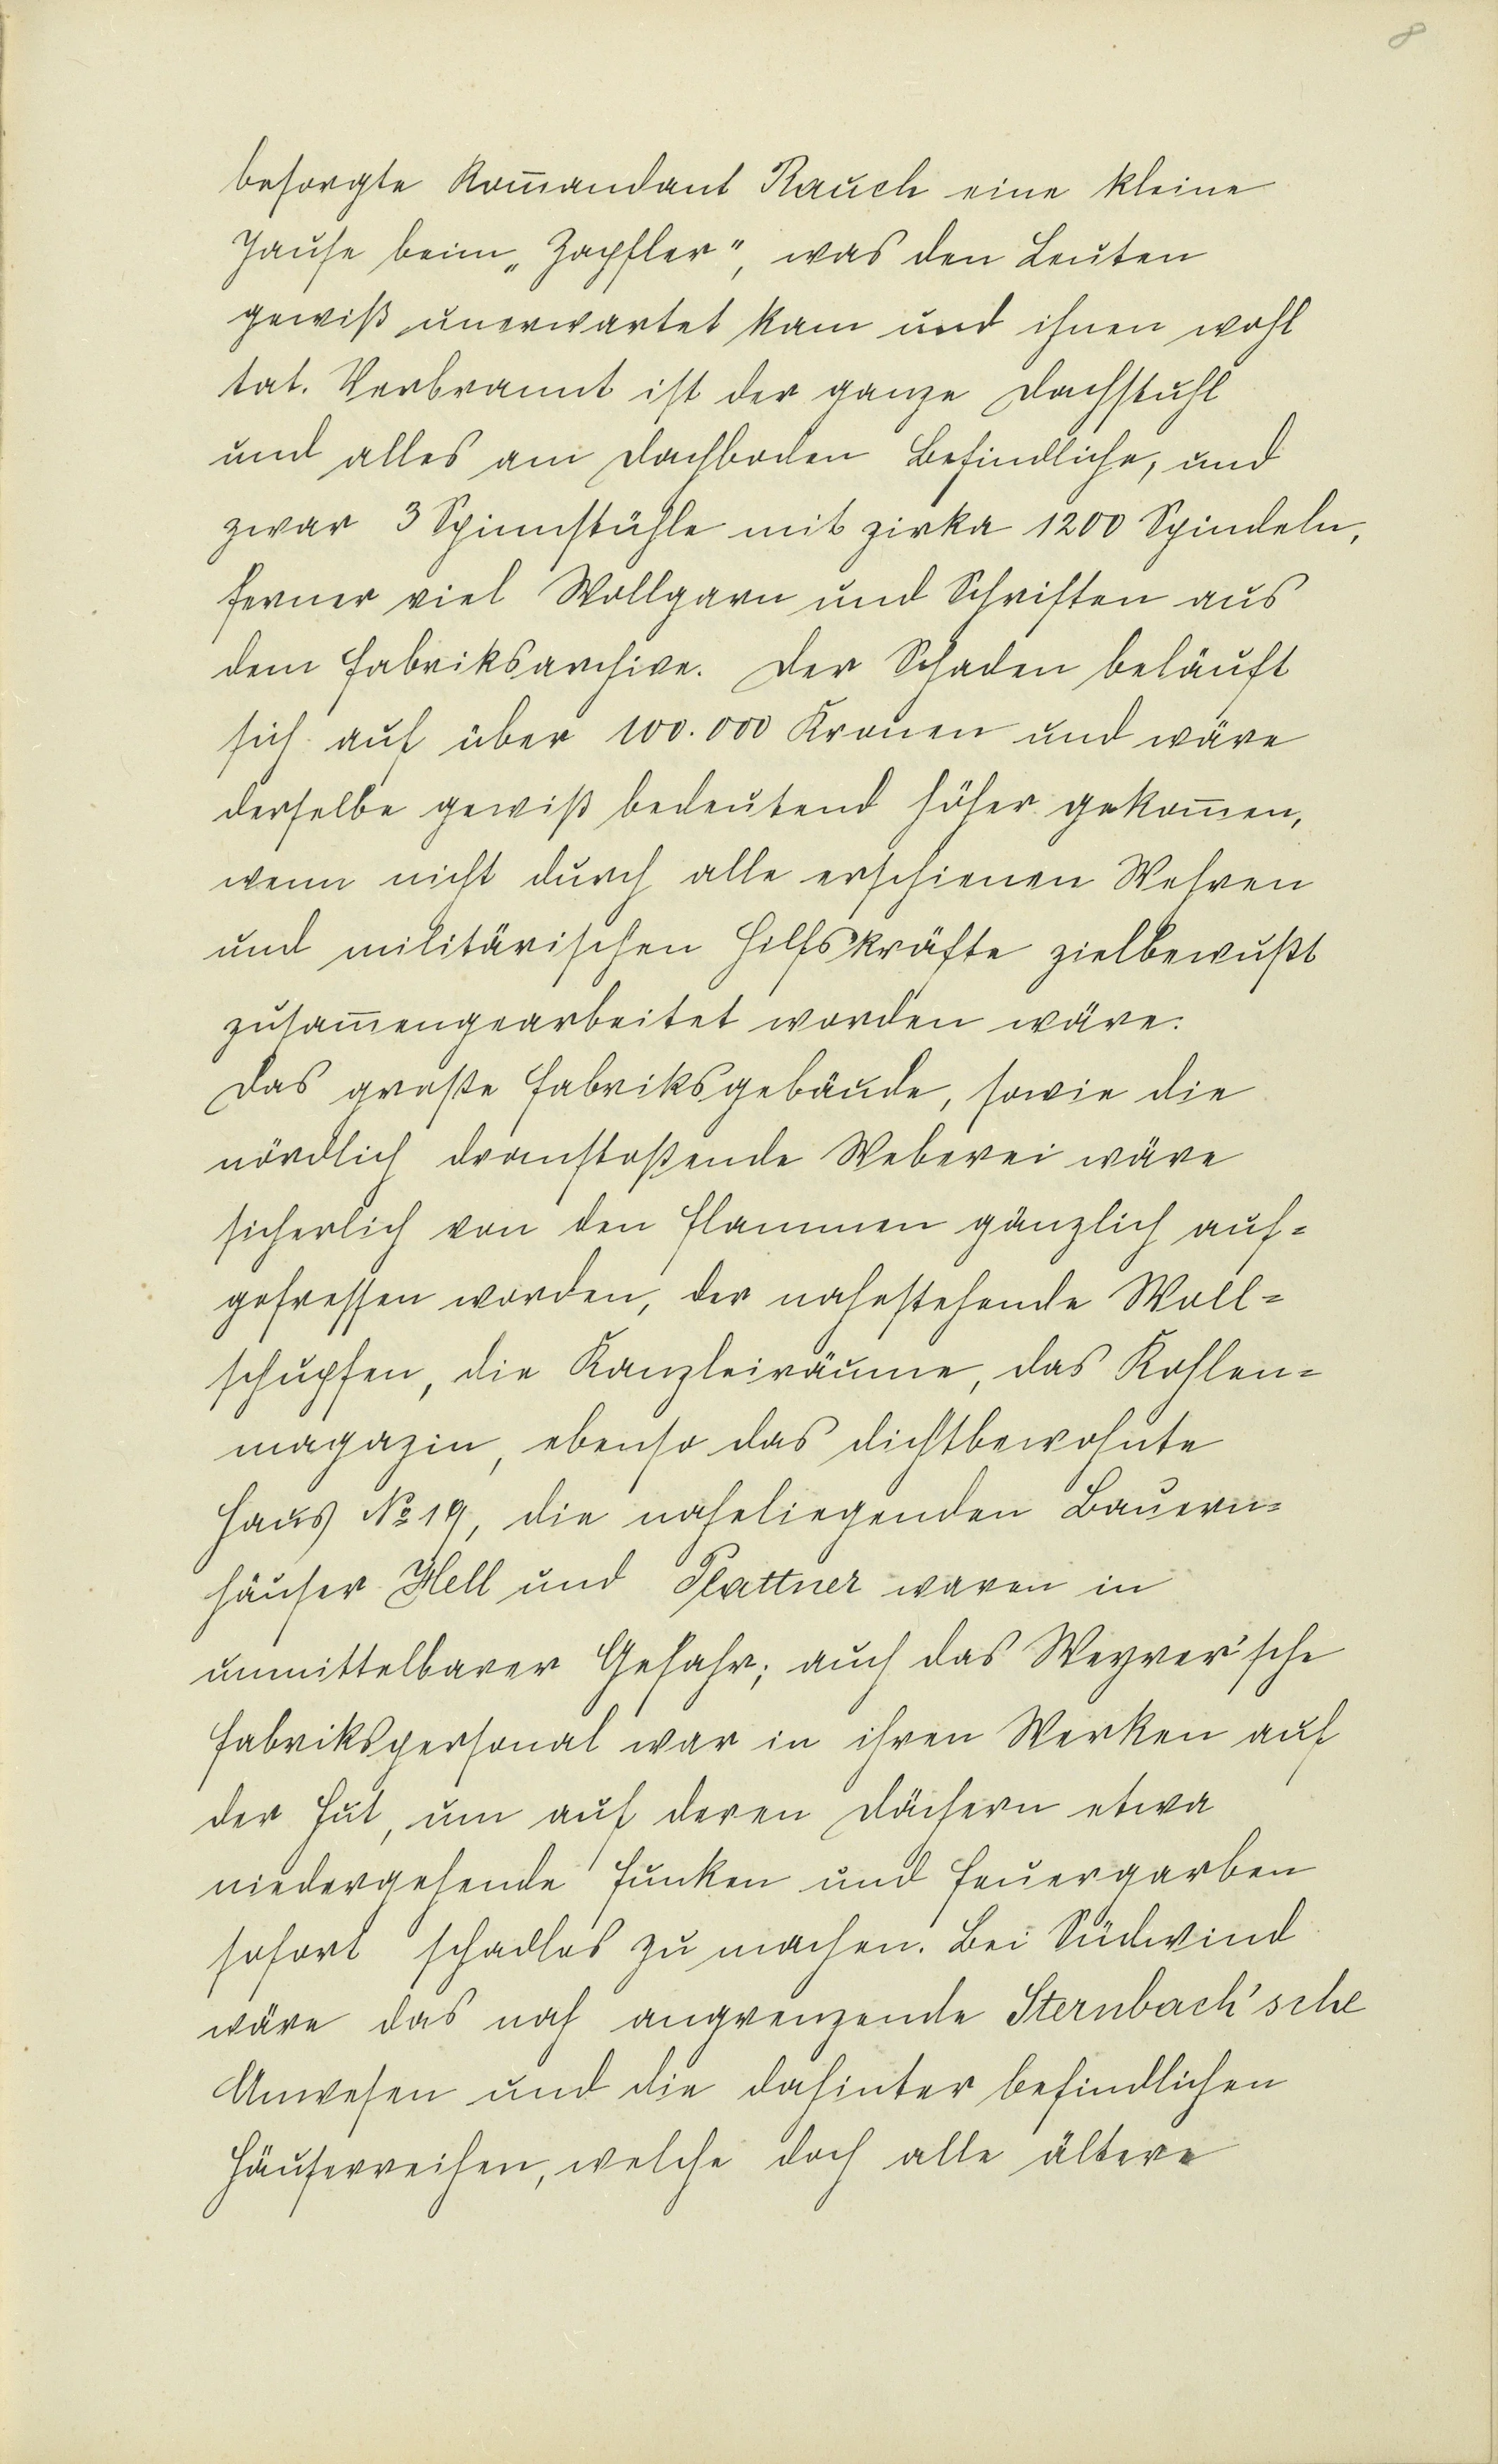 8
besorgte Kom̄andant Rauch eine kleine
Jause beim „Zapfler“, was den Leuten
gewiß unerwartet kam und ihnen wohl
tat. Verbrannt ist der ganze Dachstuhl
und alles am Dachboden Befindliche, und
zwar 3 Spinnstühle mit zirka 1200 Spindeln,
ferner viel Wollgarn und Schriften aus
dem Fabriksarchive. Der Schaden beläuft
sich auf über 100.000 Kronen und wäre
derselbe gewiß bedeutend höher gekom̄en,
wenn nicht durch alle erschienen Wehren
und militärischen Hilfskräfte zielbewußt
zusam̄engearbeitet worden wäre.
Das große Fabriksgebäude, sowie die
nördlich dranstoßende Weberei wäre
sicherlich von den Flammen gänzlich auf=
gefressen worden, der nahestehende Woll=
schupfen, die Kanzleiräume, das Kohlen=
magazin, ebenso das dichtbewohnte
Haus № 19, die naheliegenden Bauern=
häuser Hell und Plattner waren in
unmittelbarer Gefahr; auch das Weyrer'sche
Fabrikspersonal war in ihren Werken auf
der Hut, um auf deren Dächern etwa
niedergehende Funken und Feuergarben
sofort schadlos zu machen. Bei Südwind
wäre das nah angrenzende Sternbach'sche
Anwesen und die dahinter befindlichen
Häuserreihen, welche doch alle ältere